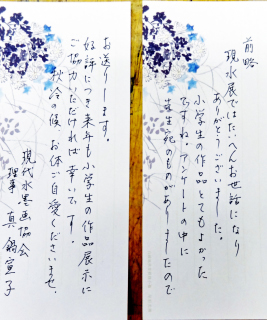 前略
現水展ではたいへんお世話になり
ありがとうございました。
小学生の作品とてもよかった
ですね。アンケートの中に
生宛のものがありましたので
お送りします。
好評につき来年も小学生の作品展示に
ご協力いただければ幸いです。
秋冷の候、お体ご自愛くださいませ。
現代水墨画協会
理事 真鍋宣子